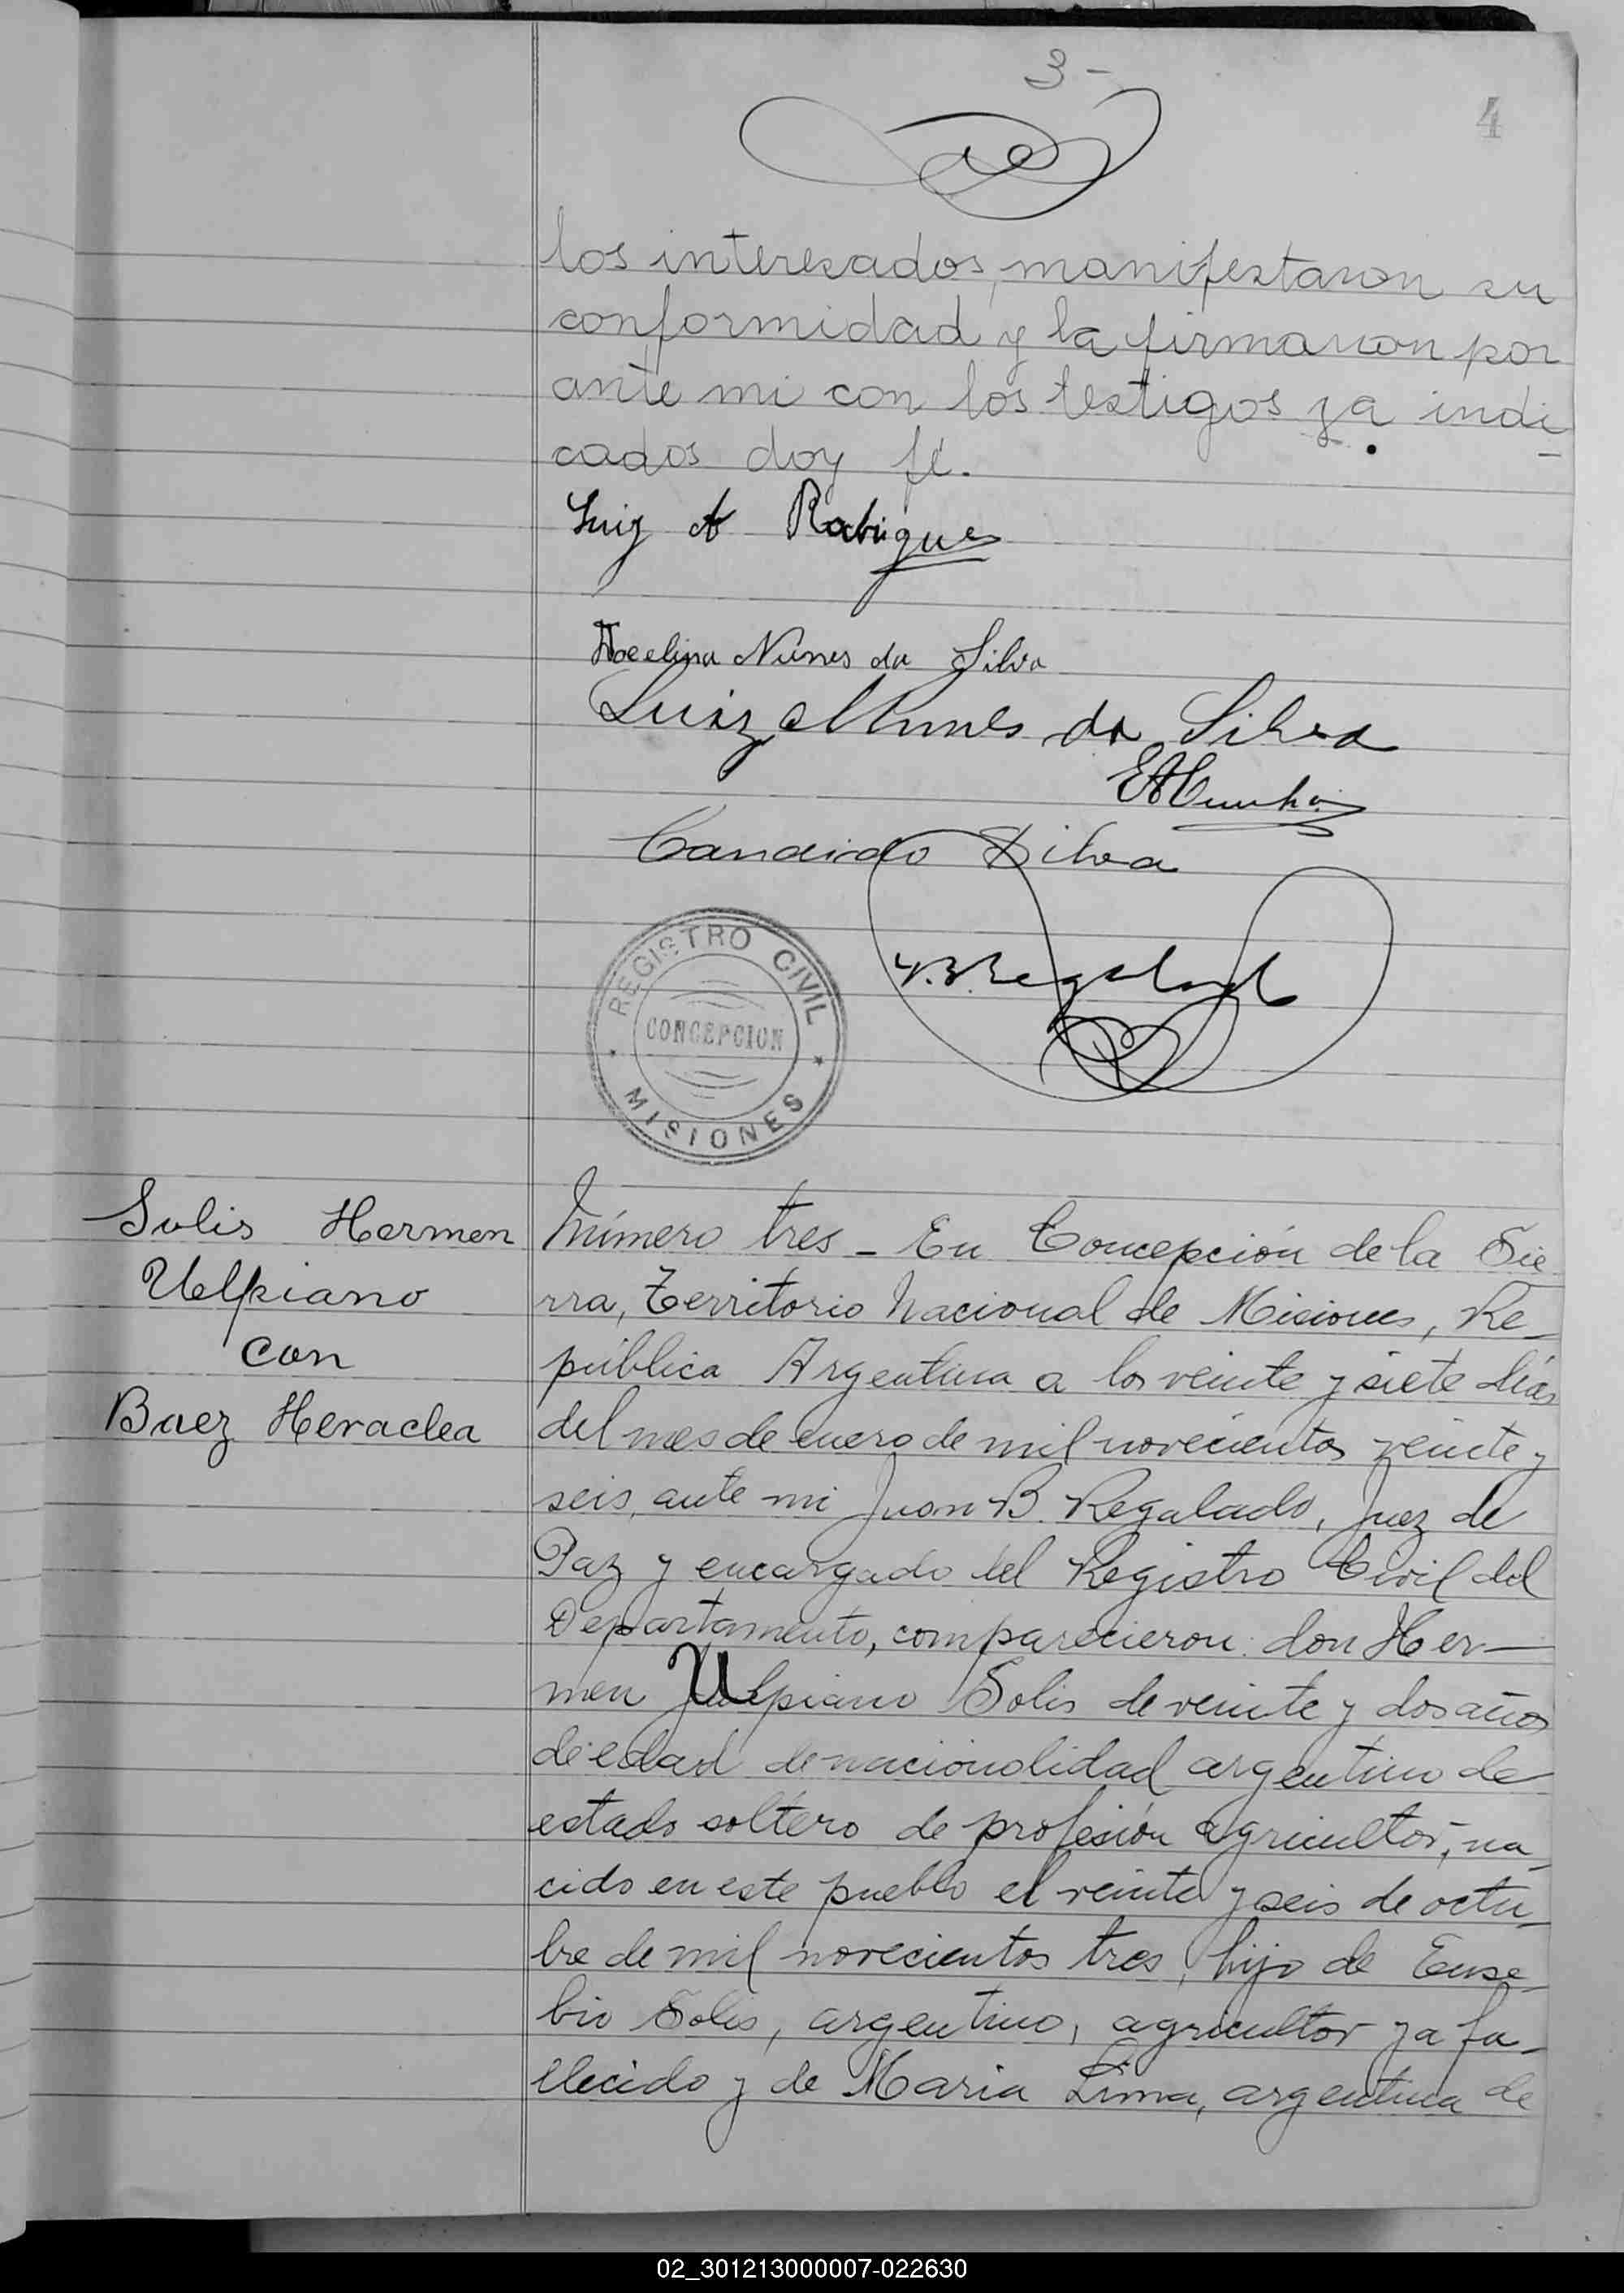 3-
4
los interesados, manifestaron su
conformidad y la firmaron por
ante mi con los testigos ya indi
cados doy fé.
Luiz A Rodrigues
Nunes da Silva
Luiz Nunes da Silva
Candido Silva
REGISTRO CIVIL
CONCEPCION
MISIONES
Solis Hermen
Uelpiano
con
Baez Heraclea
Número tres - En Concepción de la Sie
rra, Territorio Nacional de Misiones, Re_
pública Argentina a los veinte y siete días
del mes de enero de mil novecientos veinte y
seis, ante mi Juan B. Regalado, Juez de
Paz y encargado del Registro Civil del
Departamento, comparecieron: don Her—
men Ulpiano Solis de veinte y dos años
de edad de nacionalidad argentino de
estado soltero de profesión agricultor, na_
cido en este pueblo el veinte y seis de octu_
bre de mil novecientos tres, hijo de Euse_
bio Solis, argentino, agricultor ya fa_
llecido y de Maria Lima, argentina de
02_301213000007-022630